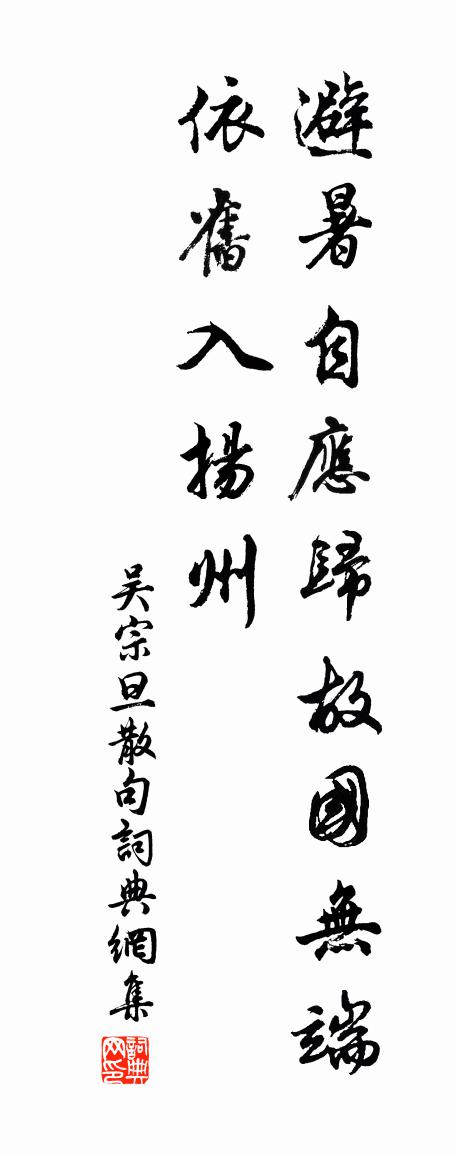 避暑自應歸故國無端
依舊入揚州
吴宗旦散句詞典網集
詞典网印